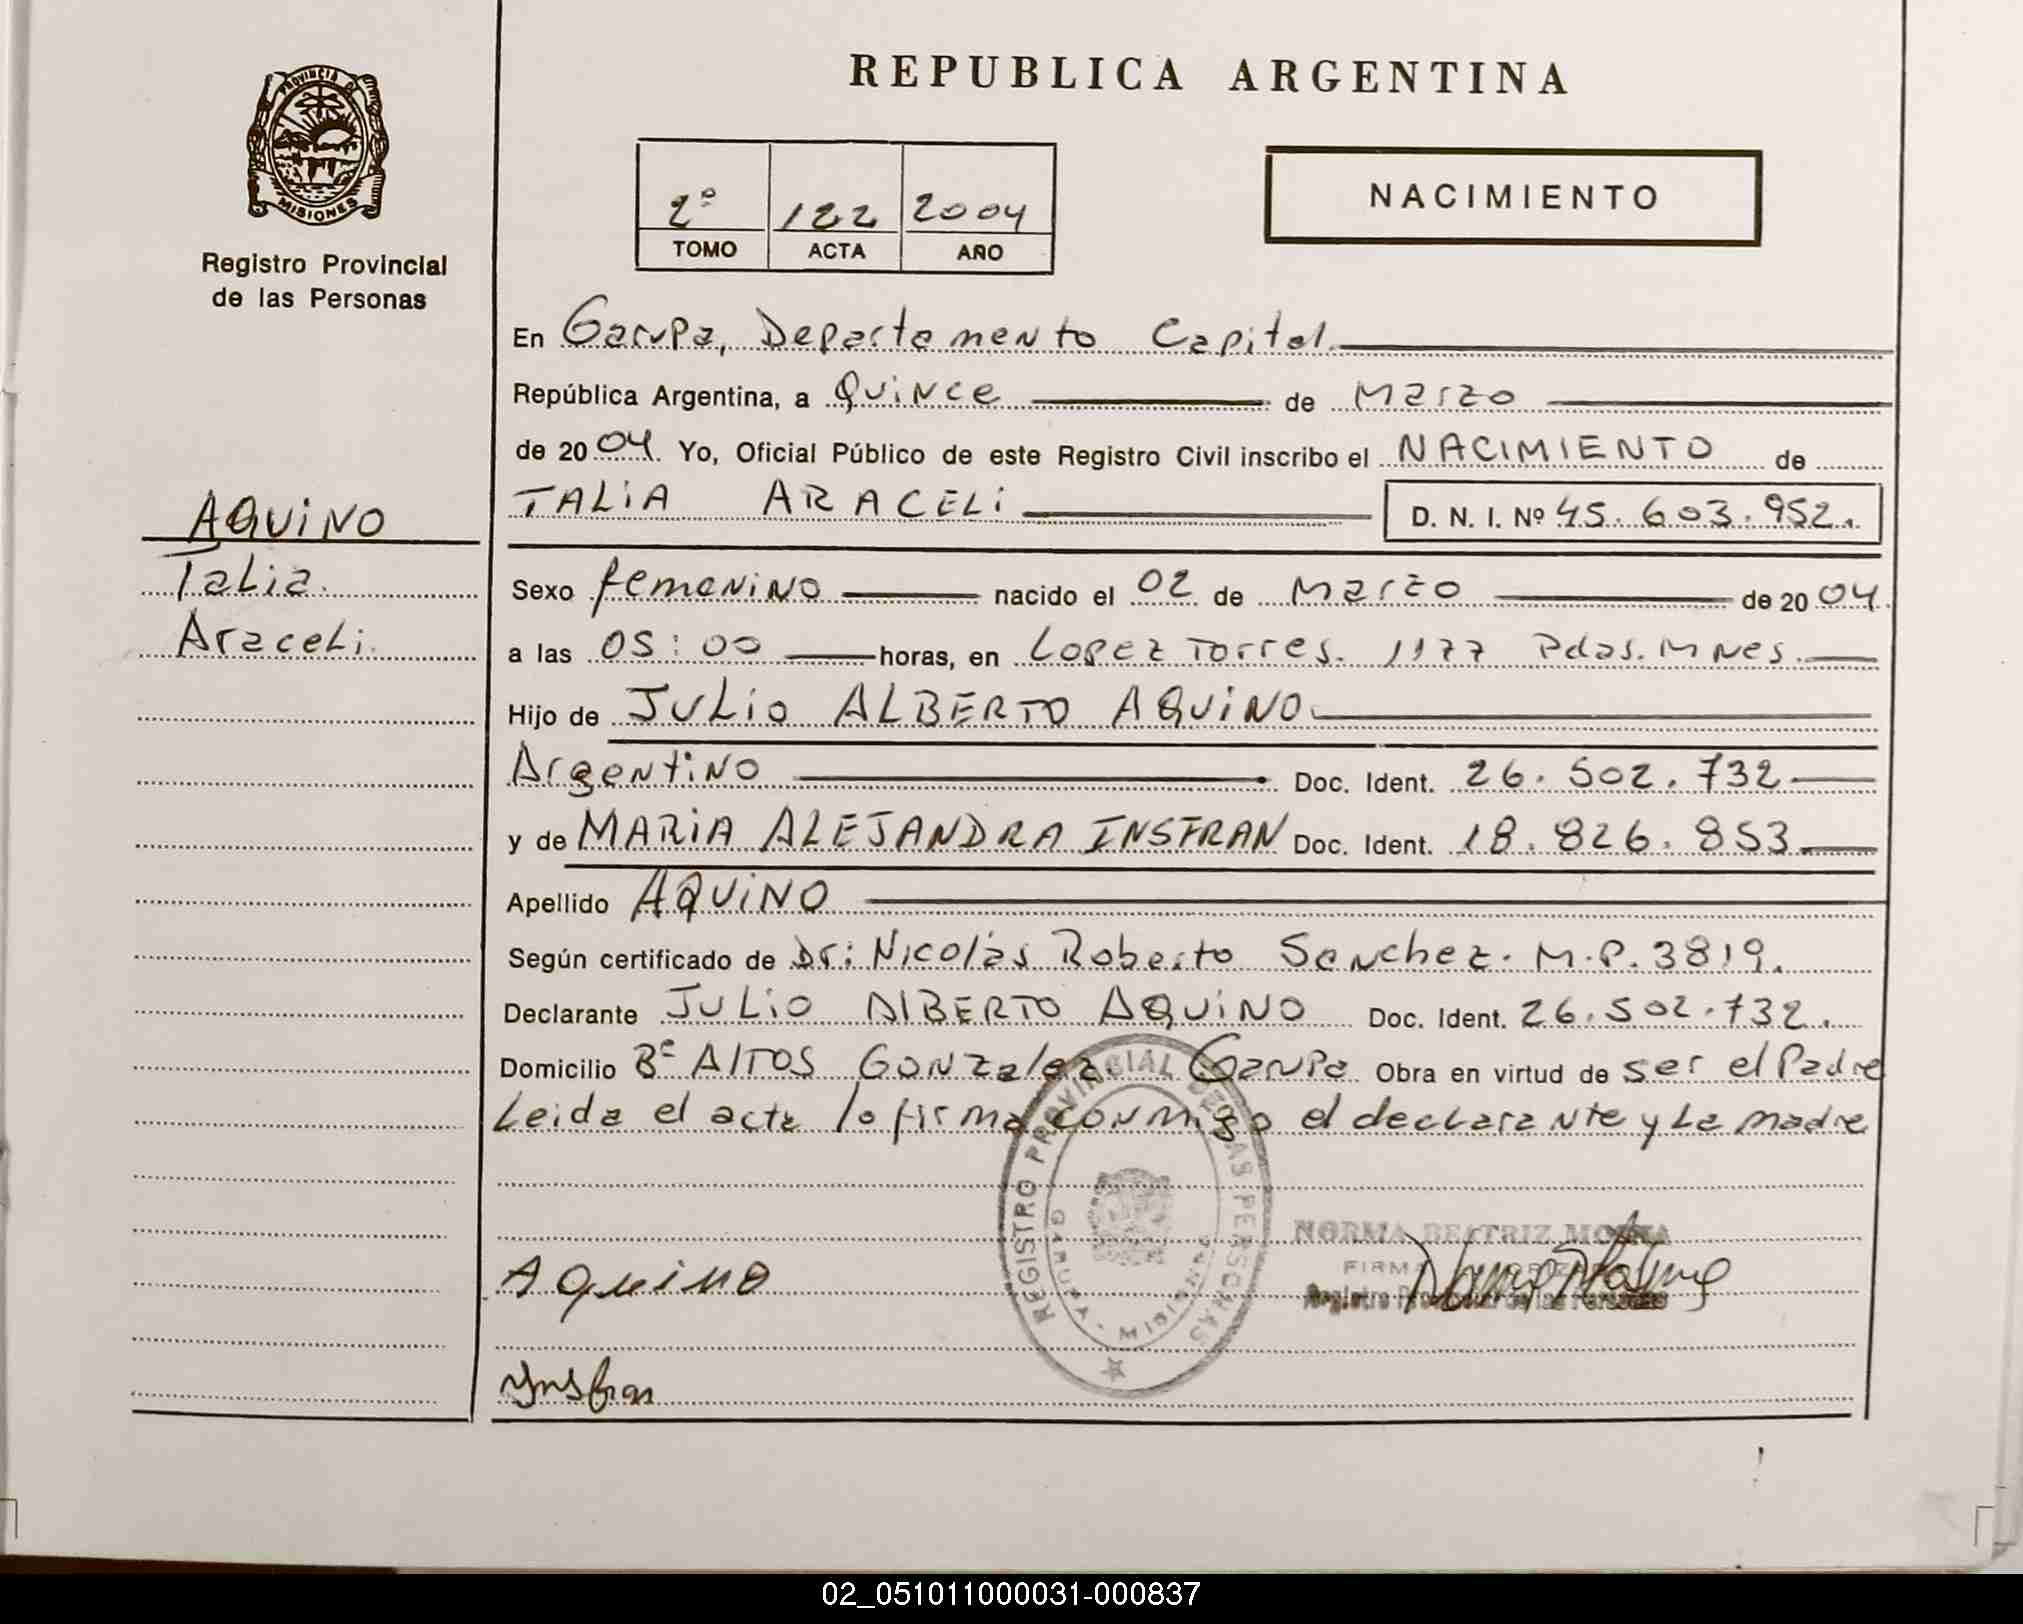 PROVINCIA DE
MISIONES
Registro Provincial
de las Personas
AQUINO
Talia
Araceli.
REPUBLICA ARGENTINA
2º 122 2004
TOMO ACTA AÑO
NACIMIENTO
En Garupa, Departamento Capital.
República Argentina, a Quince de Marzo
de 2004. Yo, Oficial Público de este Registro Civil inscribo el NACIMIENTO de
TALIA ARACELI D. N. I. Nº 45.603.952.
Sexo femenino nacido el 02 de Marzo de 2004.
a las 05:00 horas, en Lopez Torres. 1177 Pdas. Mnes.
Hijo de JULIO ALBERTO AQUINO.
Argentino Doc. Ident. 26.502.732
y de MARIA ALEJANDRA INSFRAN Doc. Ident. 18.826.853
Apellido AQUINO
Según certificado de Dr: Nicolás Roberto Sanchez. M.P. 3819.
Declarante JULIO ALBERTO AQUINO Doc. Ident. 26.502.732.
Domicilio Bº Altos Gonzalez. Garupa Obra en virtud de ser el Padre
Leida el acta lo firma conmigo el declarante y La madre
REGISTRO PROVINCIAL DE LAS PERSONAS
GARUPA - MISIONES
NORMA BEATRIZ
Registro Provincial de las Personas
Aquino
Ynsfran
02_051011000031-000837